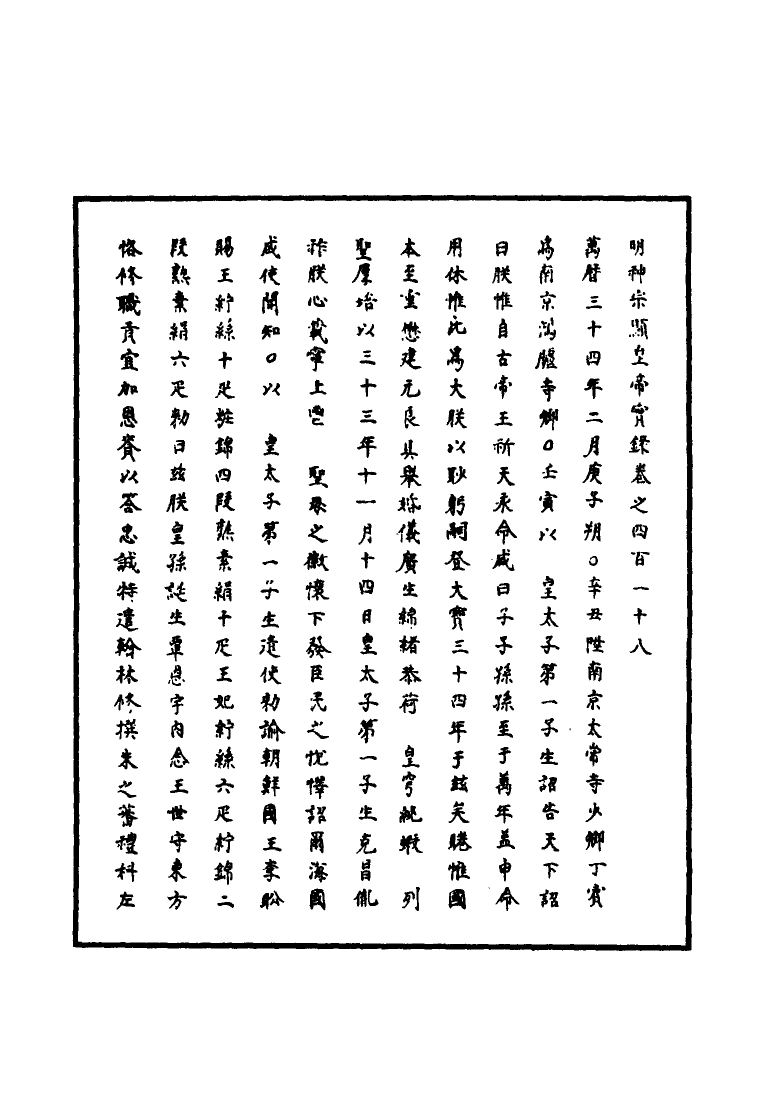 明神宗顯皇帝實錄卷之四百一十八
萬曆三十四年二月庚子朔○辛丑陞南京太常寺少卿丁賓
為南京鴻臚寺卿○壬寅以　皇太子第一子生詔告天下詔
曰朕惟自古帝王祈天永命咸曰子子孫孫至于萬年盖申命
用休惟此為大朕以眇躬嗣登大寶三十四年于玆矣睠惟國
本至重懋建元良具舉婚儀廣生綿緒恭荷　皇穹純嘏　列
聖厚培以三十三年十一月十四日皇太子第一子生克昌胤
祚朕心載寧上慰　聖母之徽懷下發臣民之忱懌詔爾海國
咸使聞知○以　皇太子第一子生遣使勑諭朝鮮國王李昖
賜王紵絲十疋粧錦四段熟素絹十疋王妃紵絲六疋紵錦二
段熟素絹六疋勑曰玆朕皇孫誕生覃恩宇內念王世守東方
恪修職貢宜加恩賚以答忠誠特遣翰林修撰朱之蕃禮科左